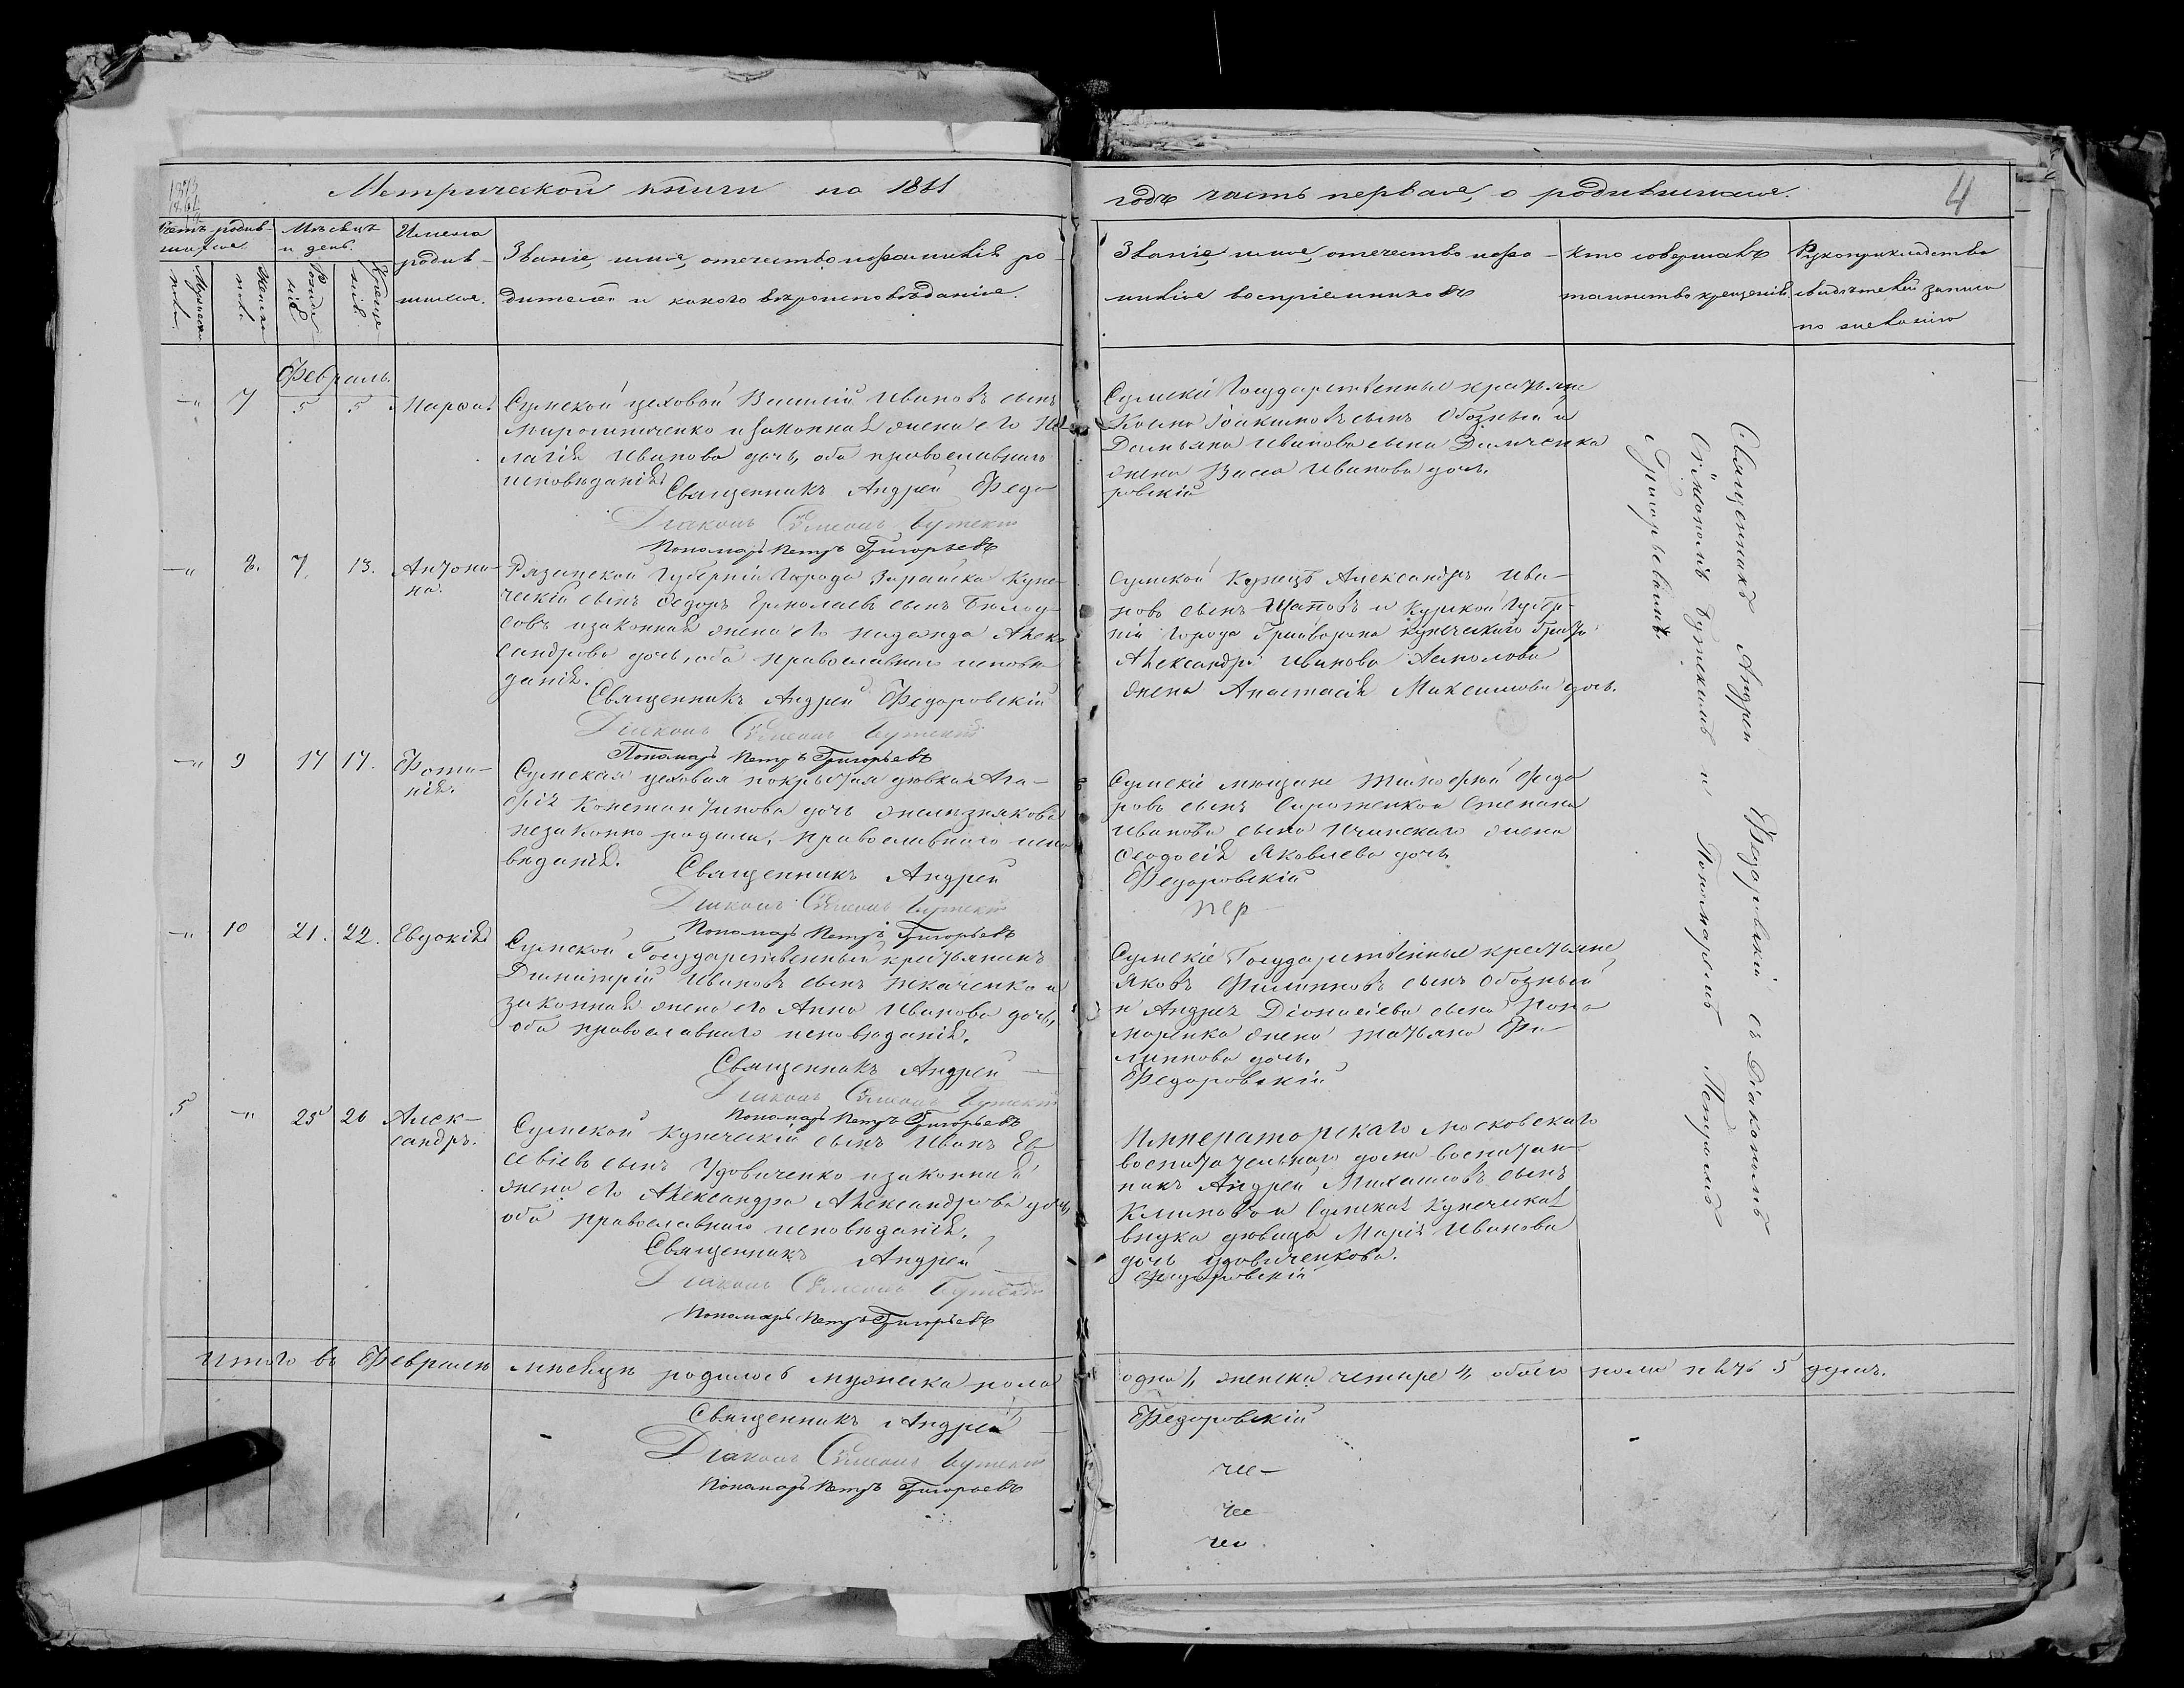 Метрической книги на 1861
годъ часть первая, о родившихся.
4
Счетъ родив-
шихся.
Мѣсяцъ
и день.
Имена
родив-
шихся.
Мужеска
пола.
Женска
пола.
Рожде
нія
Креще
нія.
Званіе, имя, отечество и фамилія ро-
дителей и какого вѣроисповѣданія.
Званіе, имя, отечество и фа-
милія воспріемниковъ
Кто совершалъ
таинство крещенія.
Рукоприкладство
свидѣтелей записи
по желанію
Февраль.
-"- 7 5 5 Параск.
Сумской цеховой Василій Ивановъ сынъ
Мирошниченко и законная жена его Пе-
лагія Иванова дочь, оба православнаго
исповѣданія
Священникъ Андрей Федо
ровскій
Діаконъ Сѵмеонъ
Пономарь Петръ Григорьевъ
Сумскіе Государственные крестьяне
Косма Іоакимовъ сынъ Обозный и
Демьяна Иванова сына Демченка
жена Васса Иванова дочь.
-"- 8. 7. 13. Антони-
на.
Рязанской Губерніи Города Зарайска Купе-
ческій сынъ Федоръ Ермолаевъ сынъ
и законная жена его Надежда Алек
сандрова дочь, оба православнаго исповѣ
данія.
Священникъ Андрей Федоровскій
Діаконъ Сѵмеонъ
Пономарь Петръ Григорьевъ
Сумской Купецъ Александръ Ива-
новъ сынъ Щаповъ и Курской Губер-
ніи Города Грайворона купеческаго брата
Александра Иванова
жена Анастасія Максимова дочь.
-"- 9 17 17. Фоти-
нія.
Сумская цеховая покрытая дѣвка Ага-
фія Константинова дочь Желѣзнякова
незаконно родила, православнаго испо
вѣданія.
Священникъ Андрей
Федоровскій
Діаконъ Сѵмеонъ
Пономарь Петръ Григорьевъ
Сумскіе мѣщане Тимофей Федо
ровъ сынъ и Степана
Иванова сына жена
Феодосія Яковлева дочь
-"- 10 21. 22. Евдокія
Сумской Государственный крестьянинъ
Димитрій Ивановъ сынъ Ткаченко и
законная жена его Анна Иванова дочь,
оба православнаго исповѣданія.
Священникъ Андрей
Федоровскій
Діаконъ Сѵмеонъ
Пономарь Петръ Григорьевъ
Сумскіе Государственные крестьяне,
Яковъ Филипповъ сынъ Обозный
и Андрея Діонисіева сына Поно
маренка жена Татьяна Фи-
липпова дочь.
5 -"- 25 26 Алек-
сандръ.
Сумской Купеческій сынъ Иванъ Ев
севіевъ сынъ Удовиченко и законная
жена его Александра Александрова дочь,
оба православнаго исповѣданія.
Священникъ Андрей
Федоровскій
Діаконъ Сѵмеонъ
Пономарь Петръ Григорьевъ
Императорскаго Московскаго
воспитательнаго дома воспитан-
никъ Андрей Михаиловъ сынъ
Климовъ и Сумская Купеческая
внука дѣвица Марія Иванова
дочь Удовиченкова.
Священникъ Андрей Федоровскій съ Діакономъ
и Пономаремъ Петромъ
Григорьевымъ.
Итого въ Февралѣ мѣсяцѣ родилось мужеска пола
одна 1, женска четыре 4, обоего пола пять 5 душъ.
Священникъ Андрей
Федоровскій
Діаконъ Сѵмеонъ
Пономарь Петръ Григорьевъ